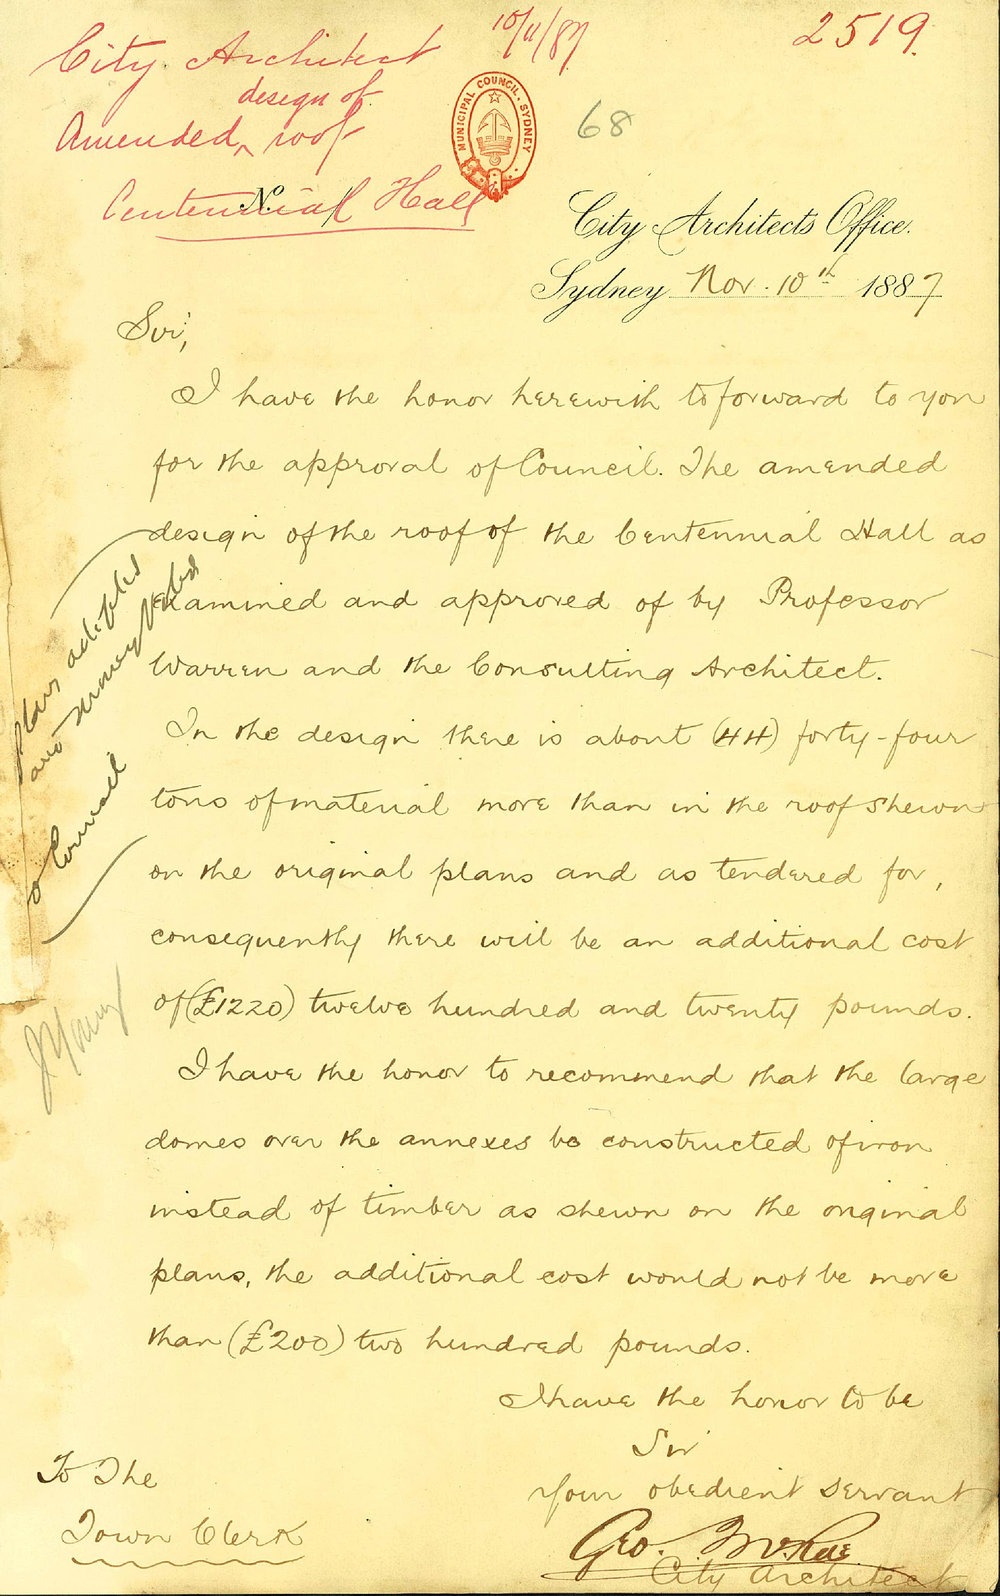 10/11/87
2519
City Architect
design of
Amended ^ roof
Centennial Hall
MUNICIPAL COUNCIL. SYDNEY
68
No.
City Architects Office.
Sydney Nov. 10th 1887
Sir,
I have the honor herewith to forward to you
for the approval of Council. The amended
design of the roof of the Centennial Hall as
examined and approved of by Professor
Warren and the Consulting Architect.
In the design there is about (44) forty-four
tons of material more than in the roof shewn
on the original plans and as tendered for,
consequently there will be an additional cost
of (£1220) twelve hundred and twenty pounds.
I have the honor to recommend that the large
domes over the annexes be constructed of iron
instead of timber as shewn on the original
plans, the additional cost would not be more
than (£200) two hundred pounds.
I have the honor to be
Sir
Your obedient servant
Geo. McRae
City Architect
To The
Town Clerk
plans adopted
and money voted
Council
J Young